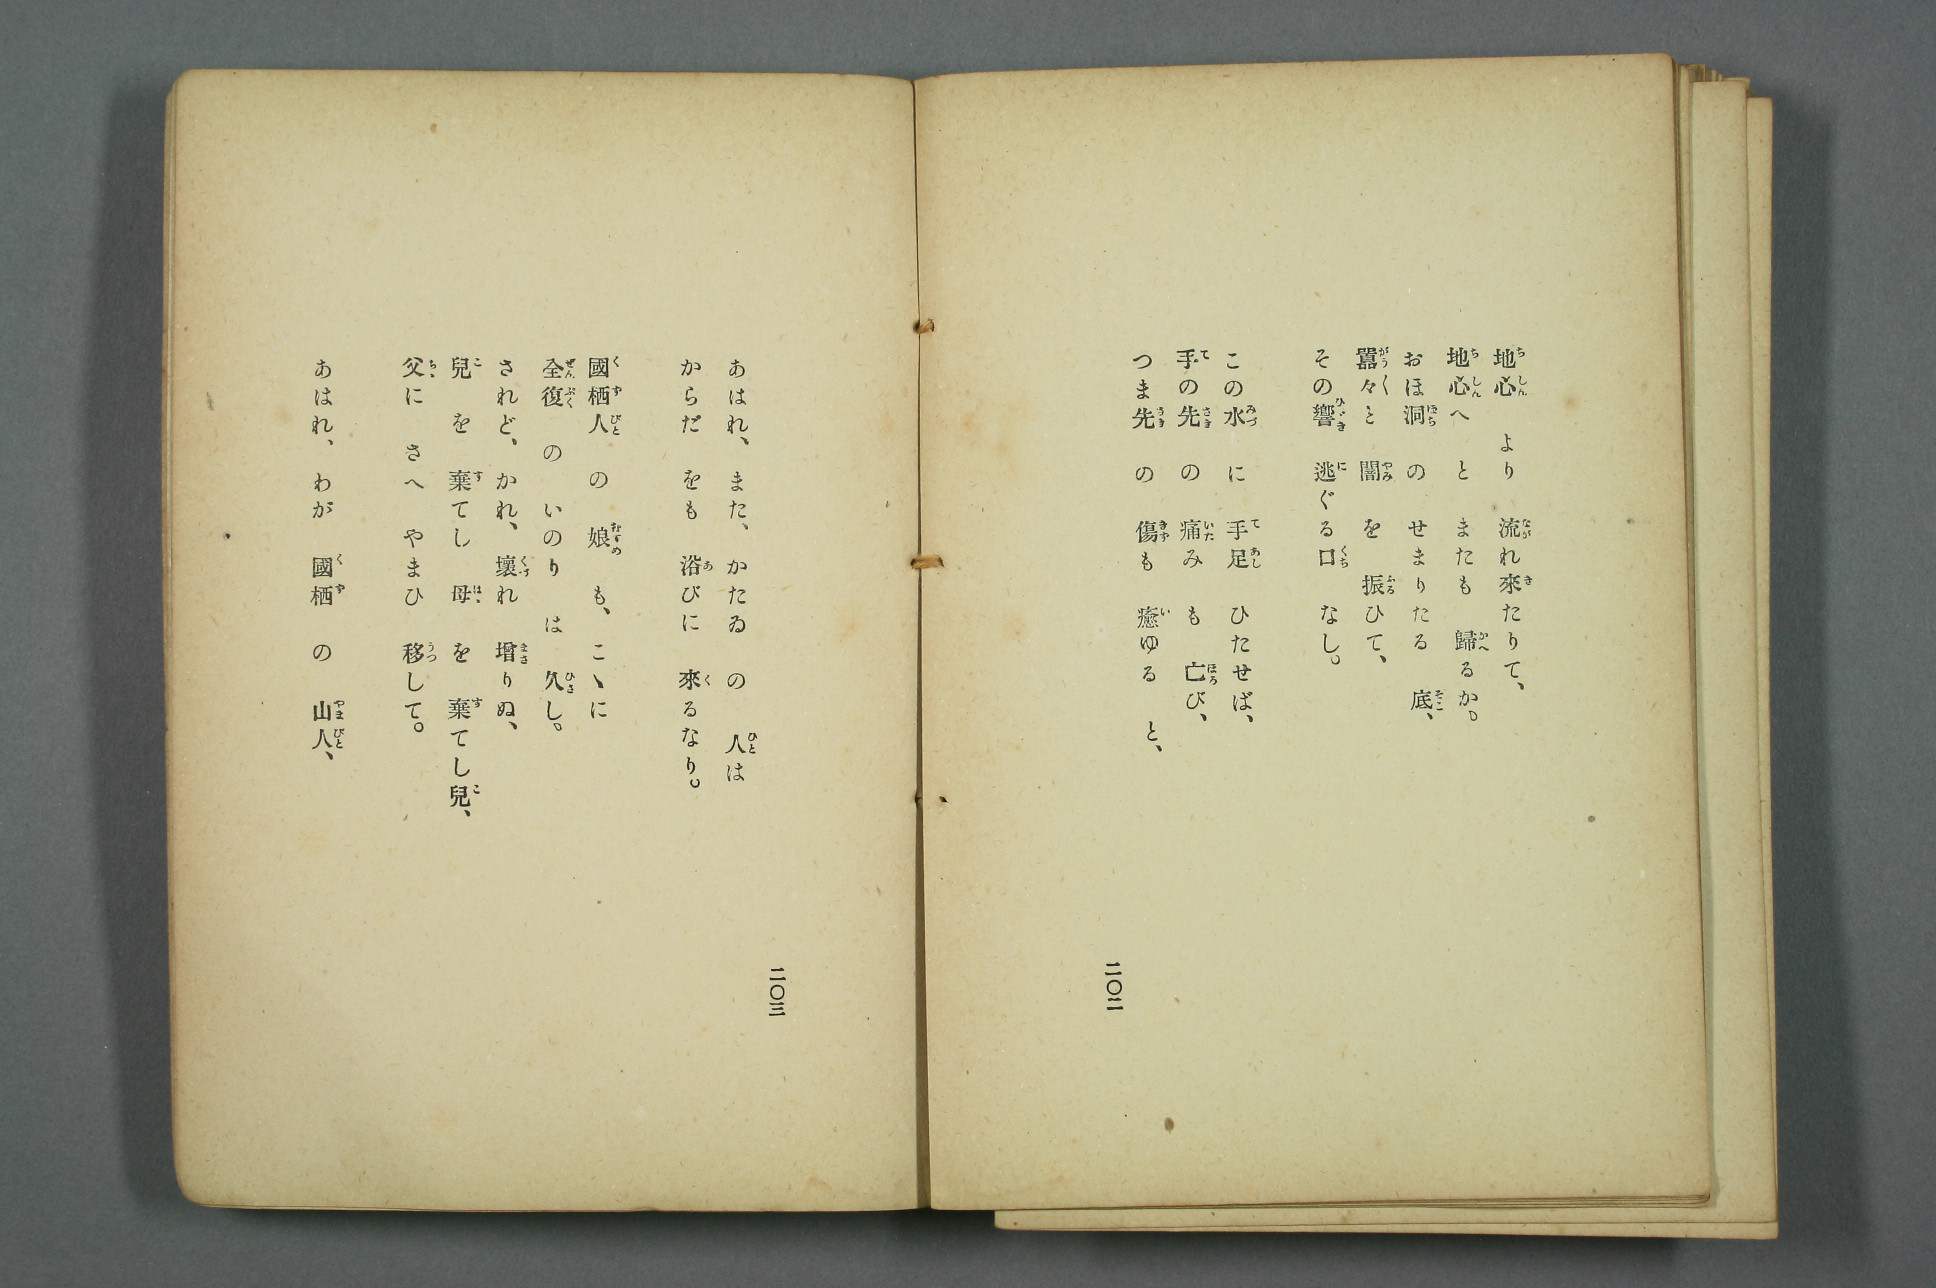 地心 より 流れ來たりて、
地心へ と またも 歸るか。
おほ洞 の せまりたる 底、
囂々と 闇 を 振ひて、
その響 逃ぐる口 なし。
この水 に 手足 ひたせば、
手の先 の 痛み も 亡び、
つま先 の 傷も 癒ゆる と、
二〇二
あはれ、また、かたゐ の 人は
からだ をも 浴びに 來るなり。
國栖人 の 娘 も、こゝに
全復 の いのり は 久し。
されど、かれ、壞れ 增りぬ、
兒 を 棄てし 母 を 棄てし兒、
父に さへ やまひ 移して。
あはれ、わが 國栖 の 山人、
二〇三